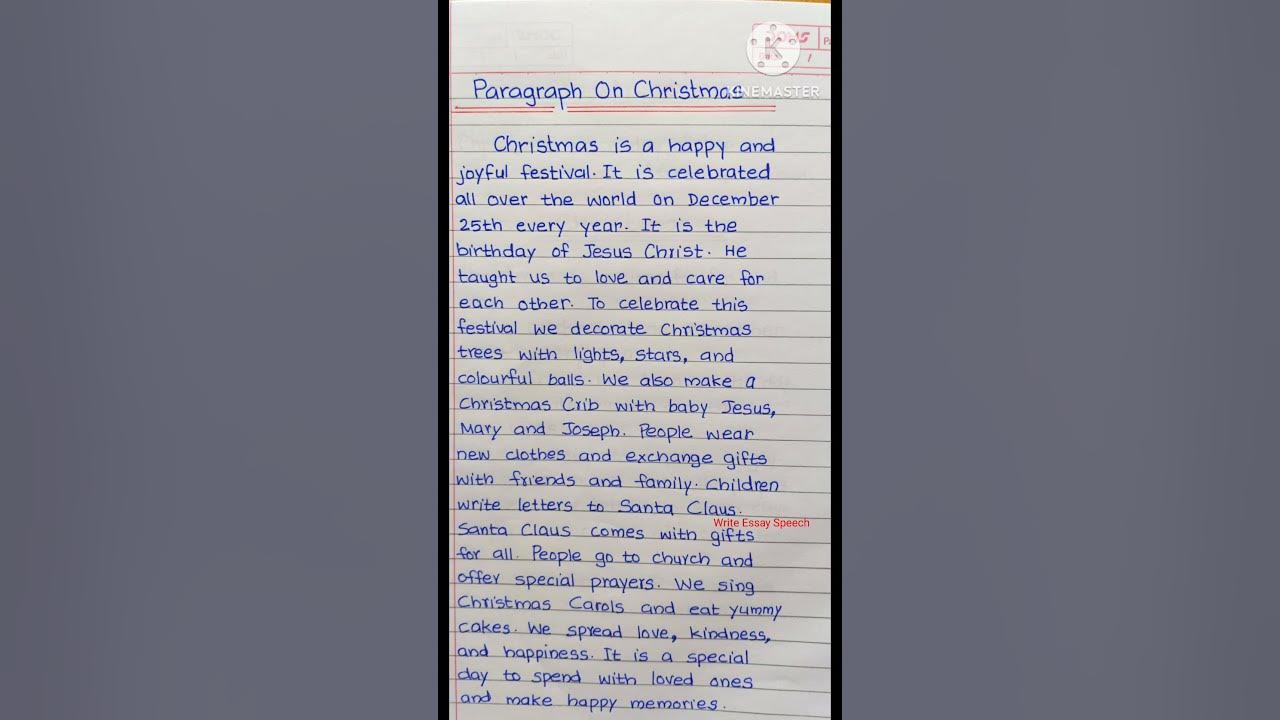 Paragraph On Christmas
KINEMASTER
Christmas is a happy and
joyful festival. It is celebrated
all over the world on December
25th every year. It is the
birthday of Jesus Christ. He
taught us to love and care for
each other. To celebrate this
festival we decorate Christmas
trees with lights, stars, and
colourful balls. We also make a
Christmas Crib with baby Jesus,
Mary and Joseph. People wear
new clothes and exchange gifts
with friends and family. Children
write letters to Santa Claus.
Write Essay Speech
Santa Claus comes with gifts
for all. People go to church and
offer special prayers. We sing
Christmas Carols and eat yummy
cakes. We spread love, kindness,
and happiness. It is a special
day to spend with loved ones
and make happy memories.